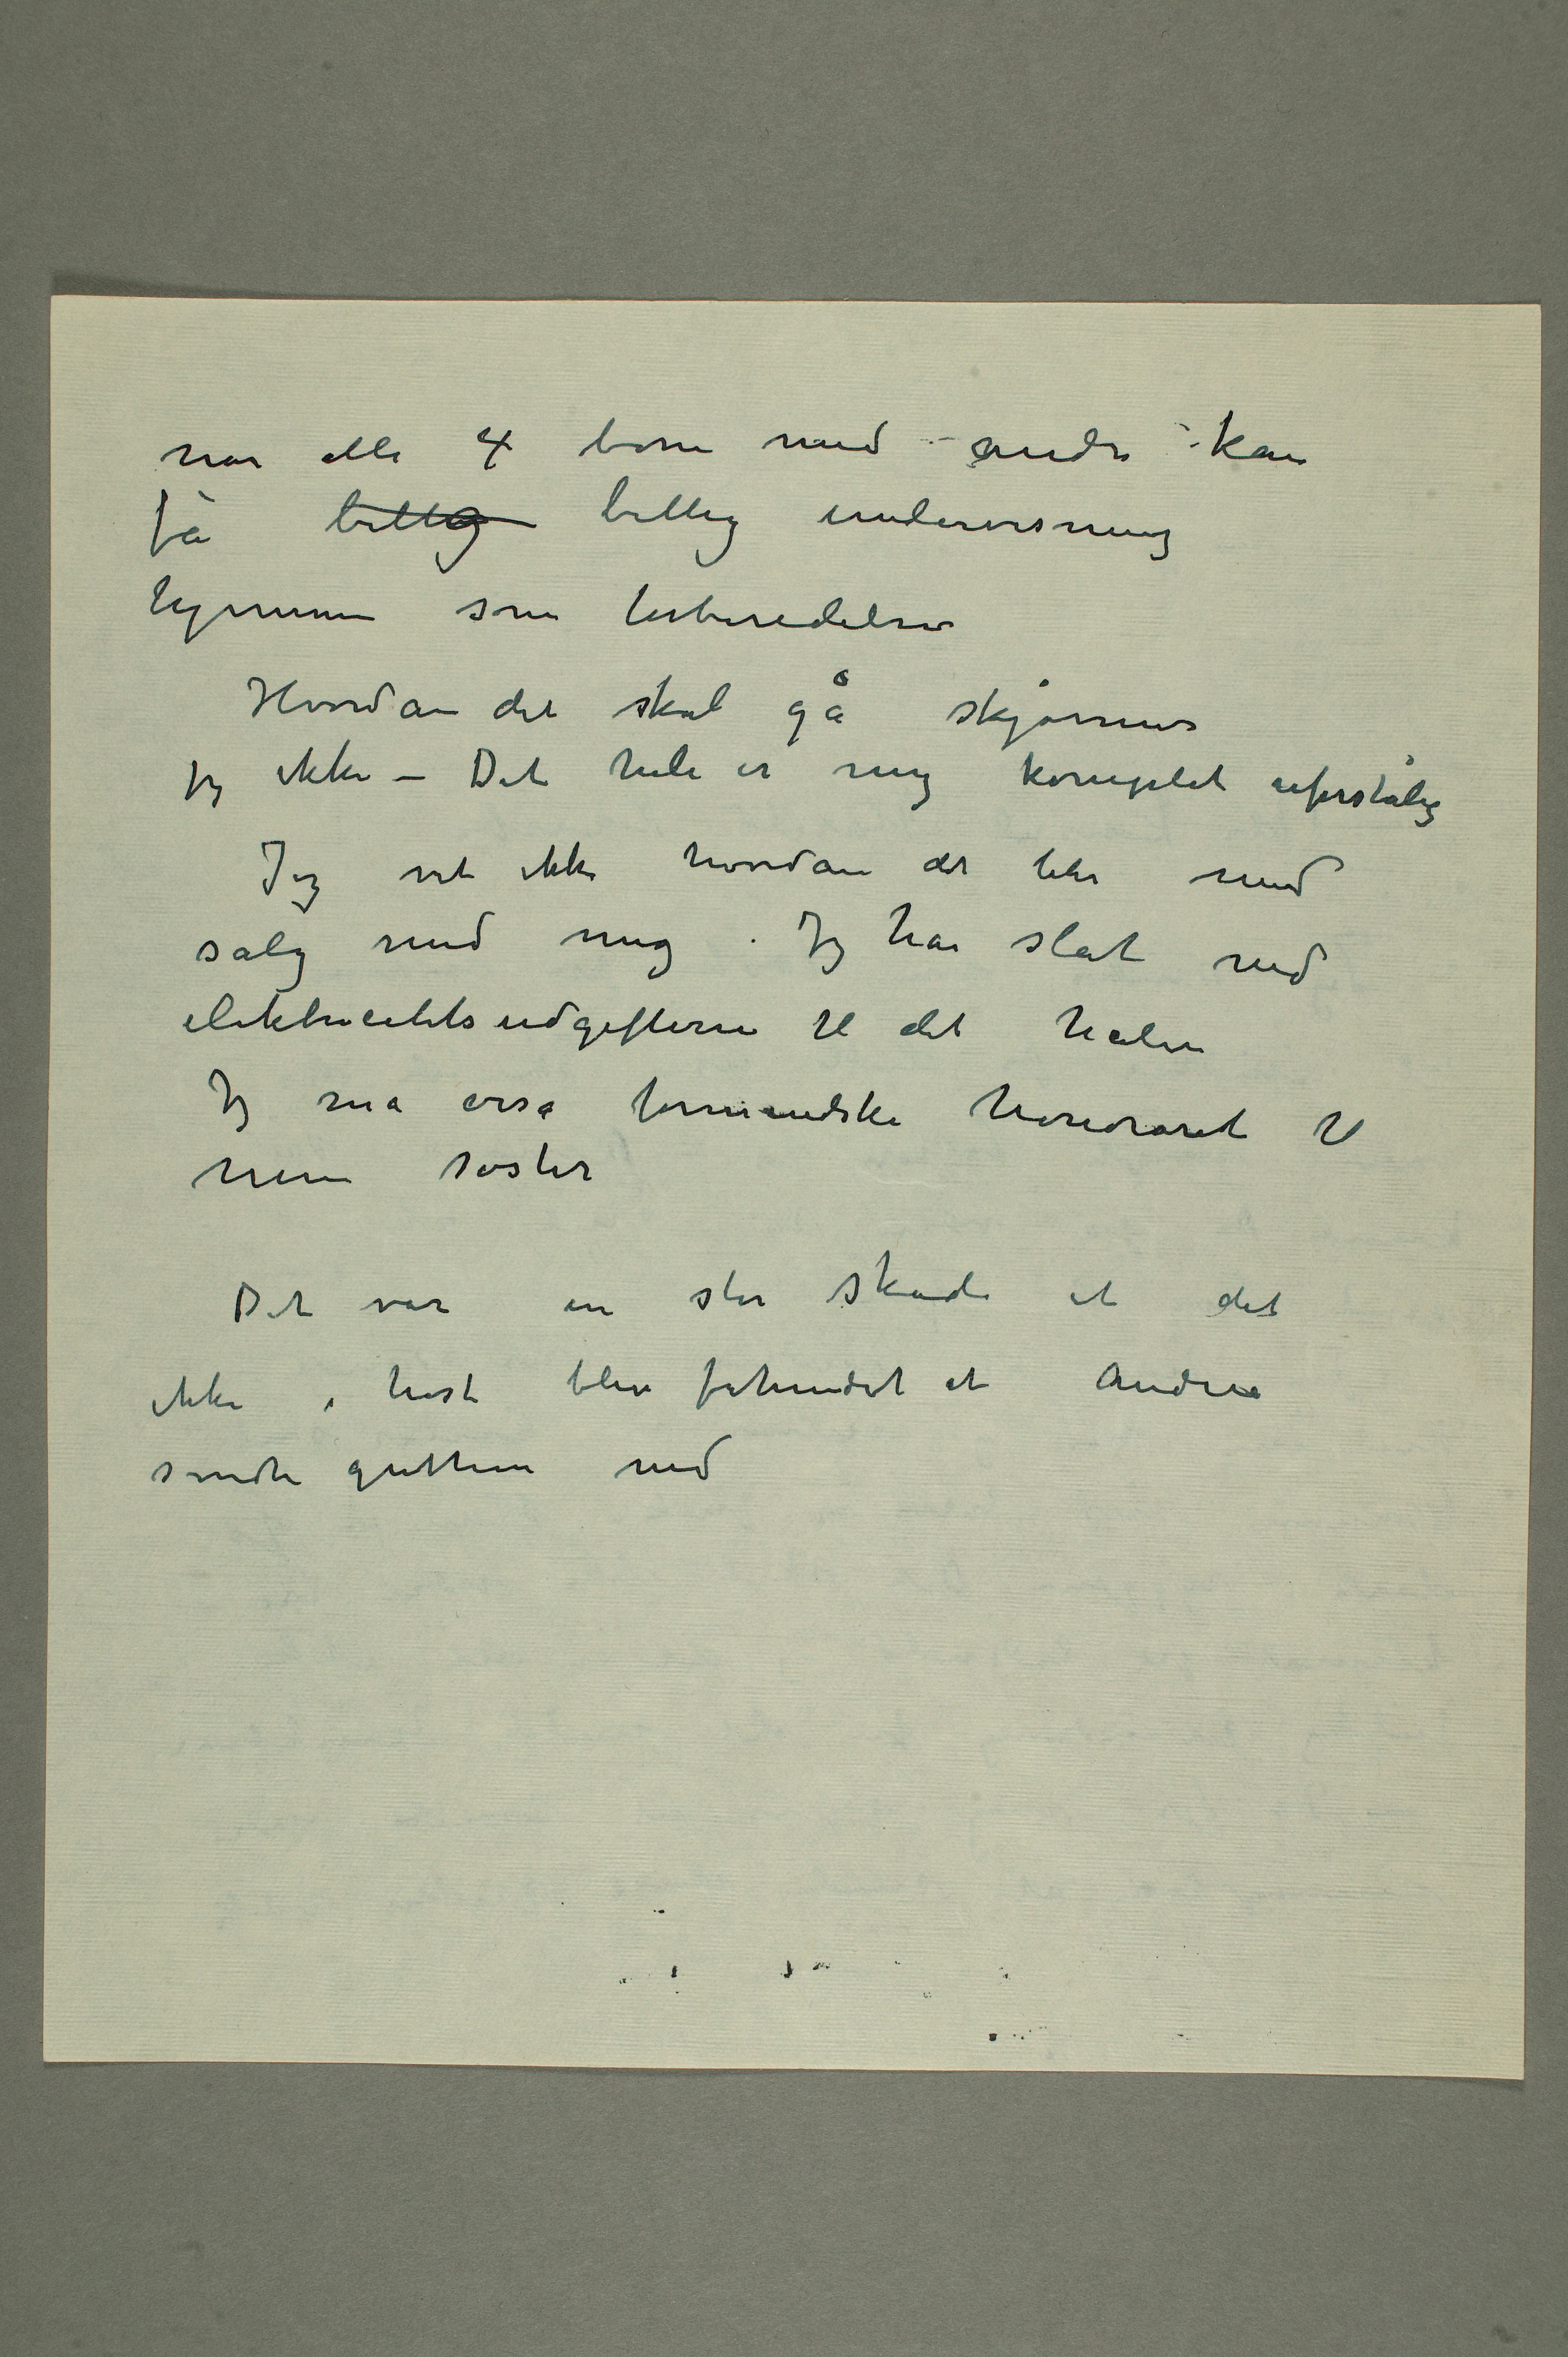 når alle 4 børn med andre kan
få billig billig undervisning
hjemme som forberedelse
Hvordan det skal gå skjønner
jeg ikke – Det hele er mig komplet uforståelig
Jeg vet ikke hvordan det blir med
salg med mig. Jeg har slåt ned
elektricitetsudgifterne til det halve
Jeg må også formindske honoraret til
min søster
Det var en stor skade at det
ikke i høst blev forhindret at Andrea
sendte guttene ned